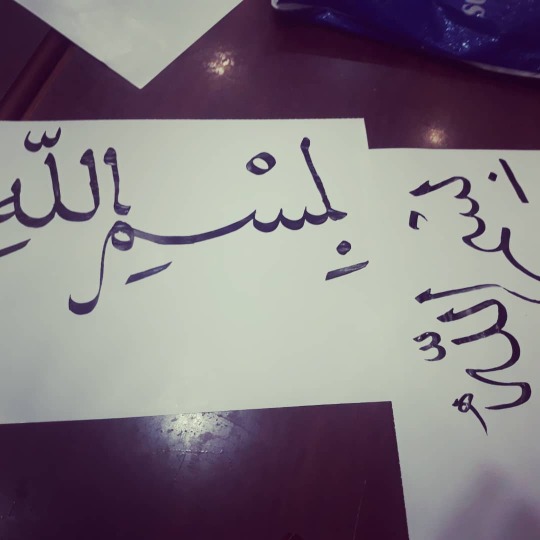 بِسْمِ اللّهِ
بسم اللّه